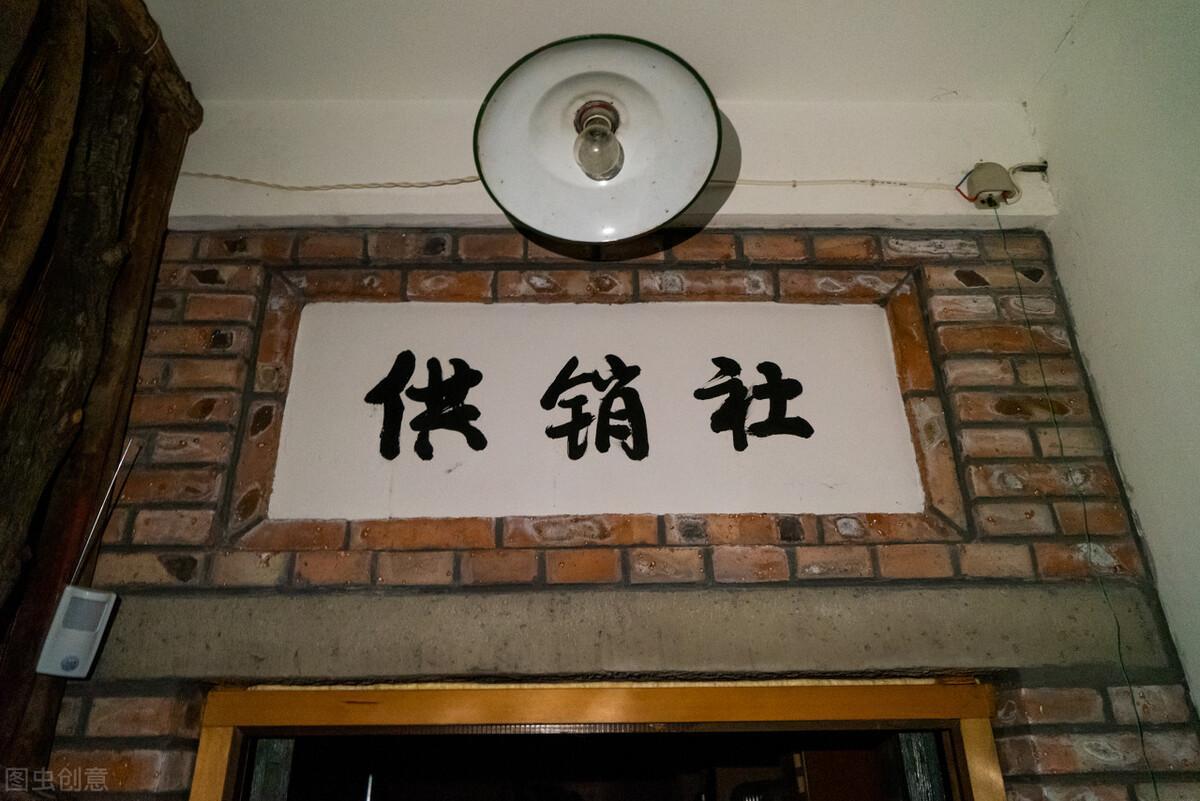 供销社
图虫创意